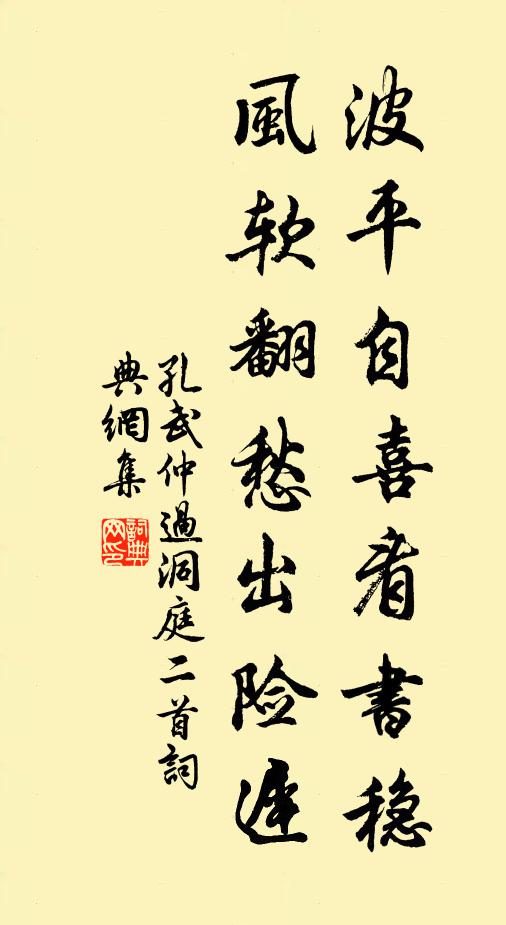 波平自喜看書稳
風软翻愁出险遲
孔武仲過洞庭二首詞
典網集
詞典网印